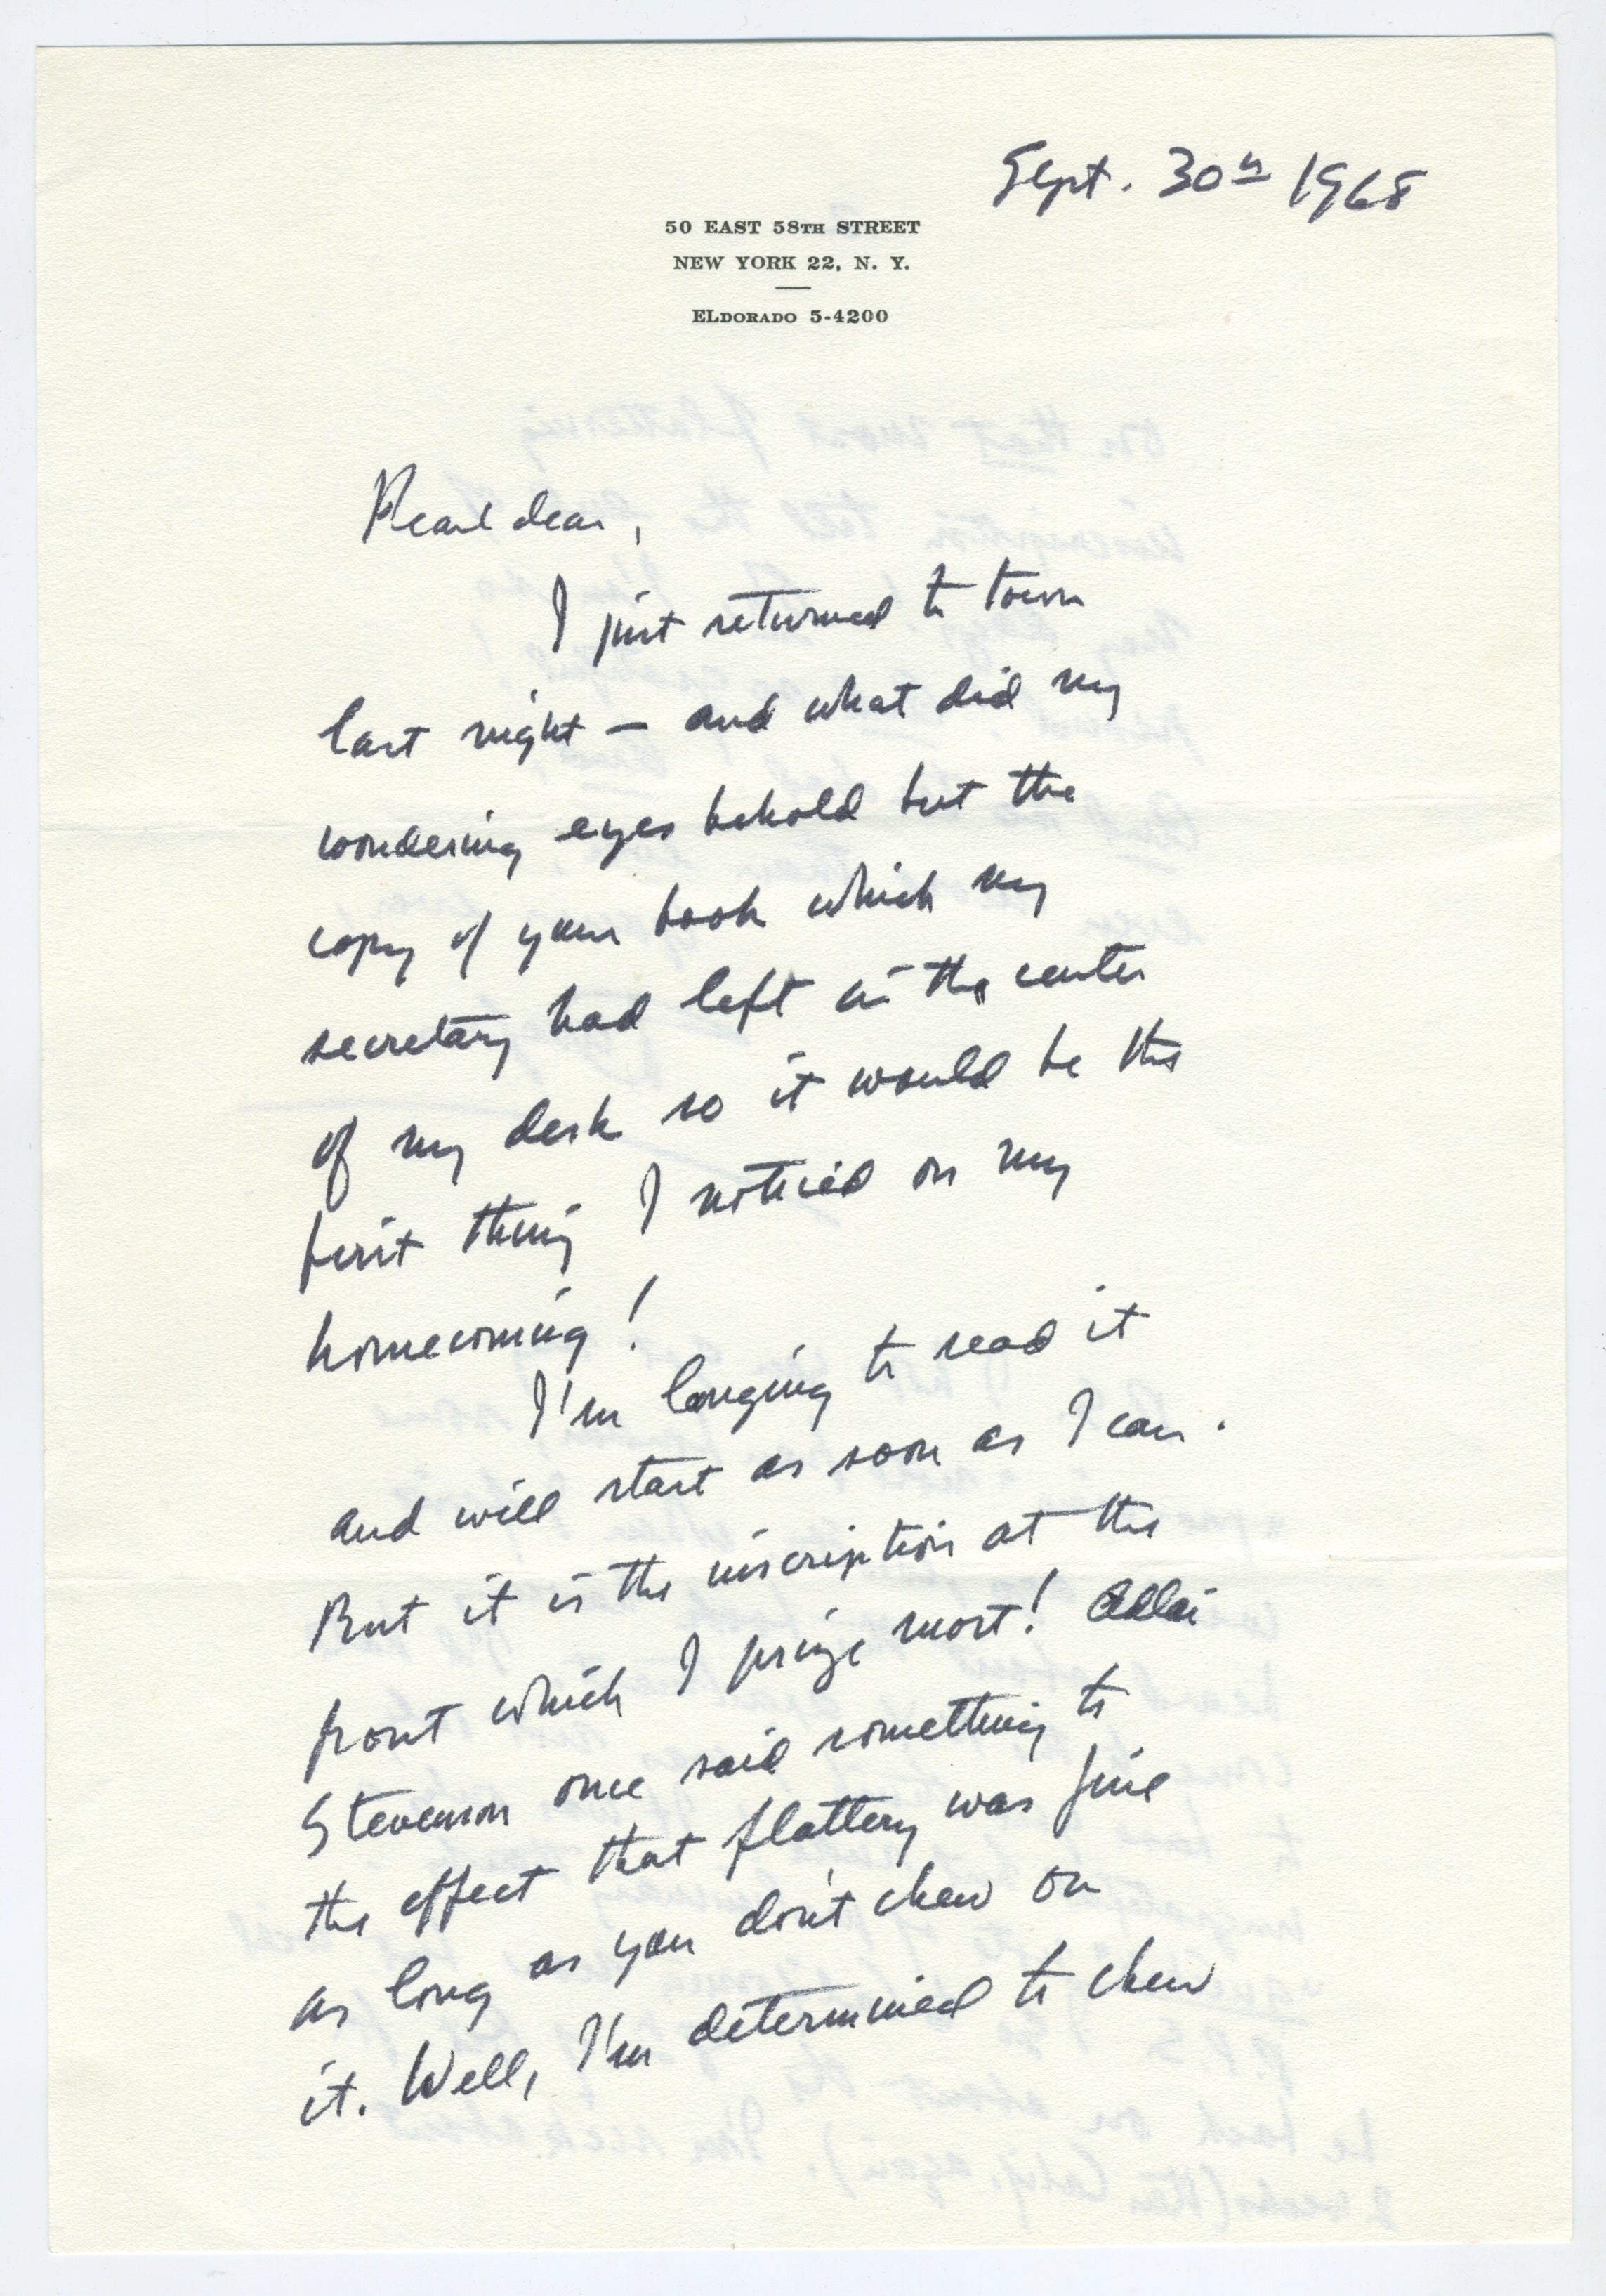 Sept. 30th 1968
50 EAST 58TH STREET
NEW YORK 22, N. Y.
ELDORADO 5-4200
Pearl dear,
I just returned to town
last night — and what did my
wondering eyes behold but the
copy of your book which my
secretary had left in the center
of my desk so it would be the
first thing I noticed on my
homecoming!
I'm longing to read it
and will start as soon as I can.
But it is the inscription at the
front which I prize most! Adlai
Stevenson once said something to
the effect that flattery was fine
as long as you don't chew on
it. Well, I'm determined to chew